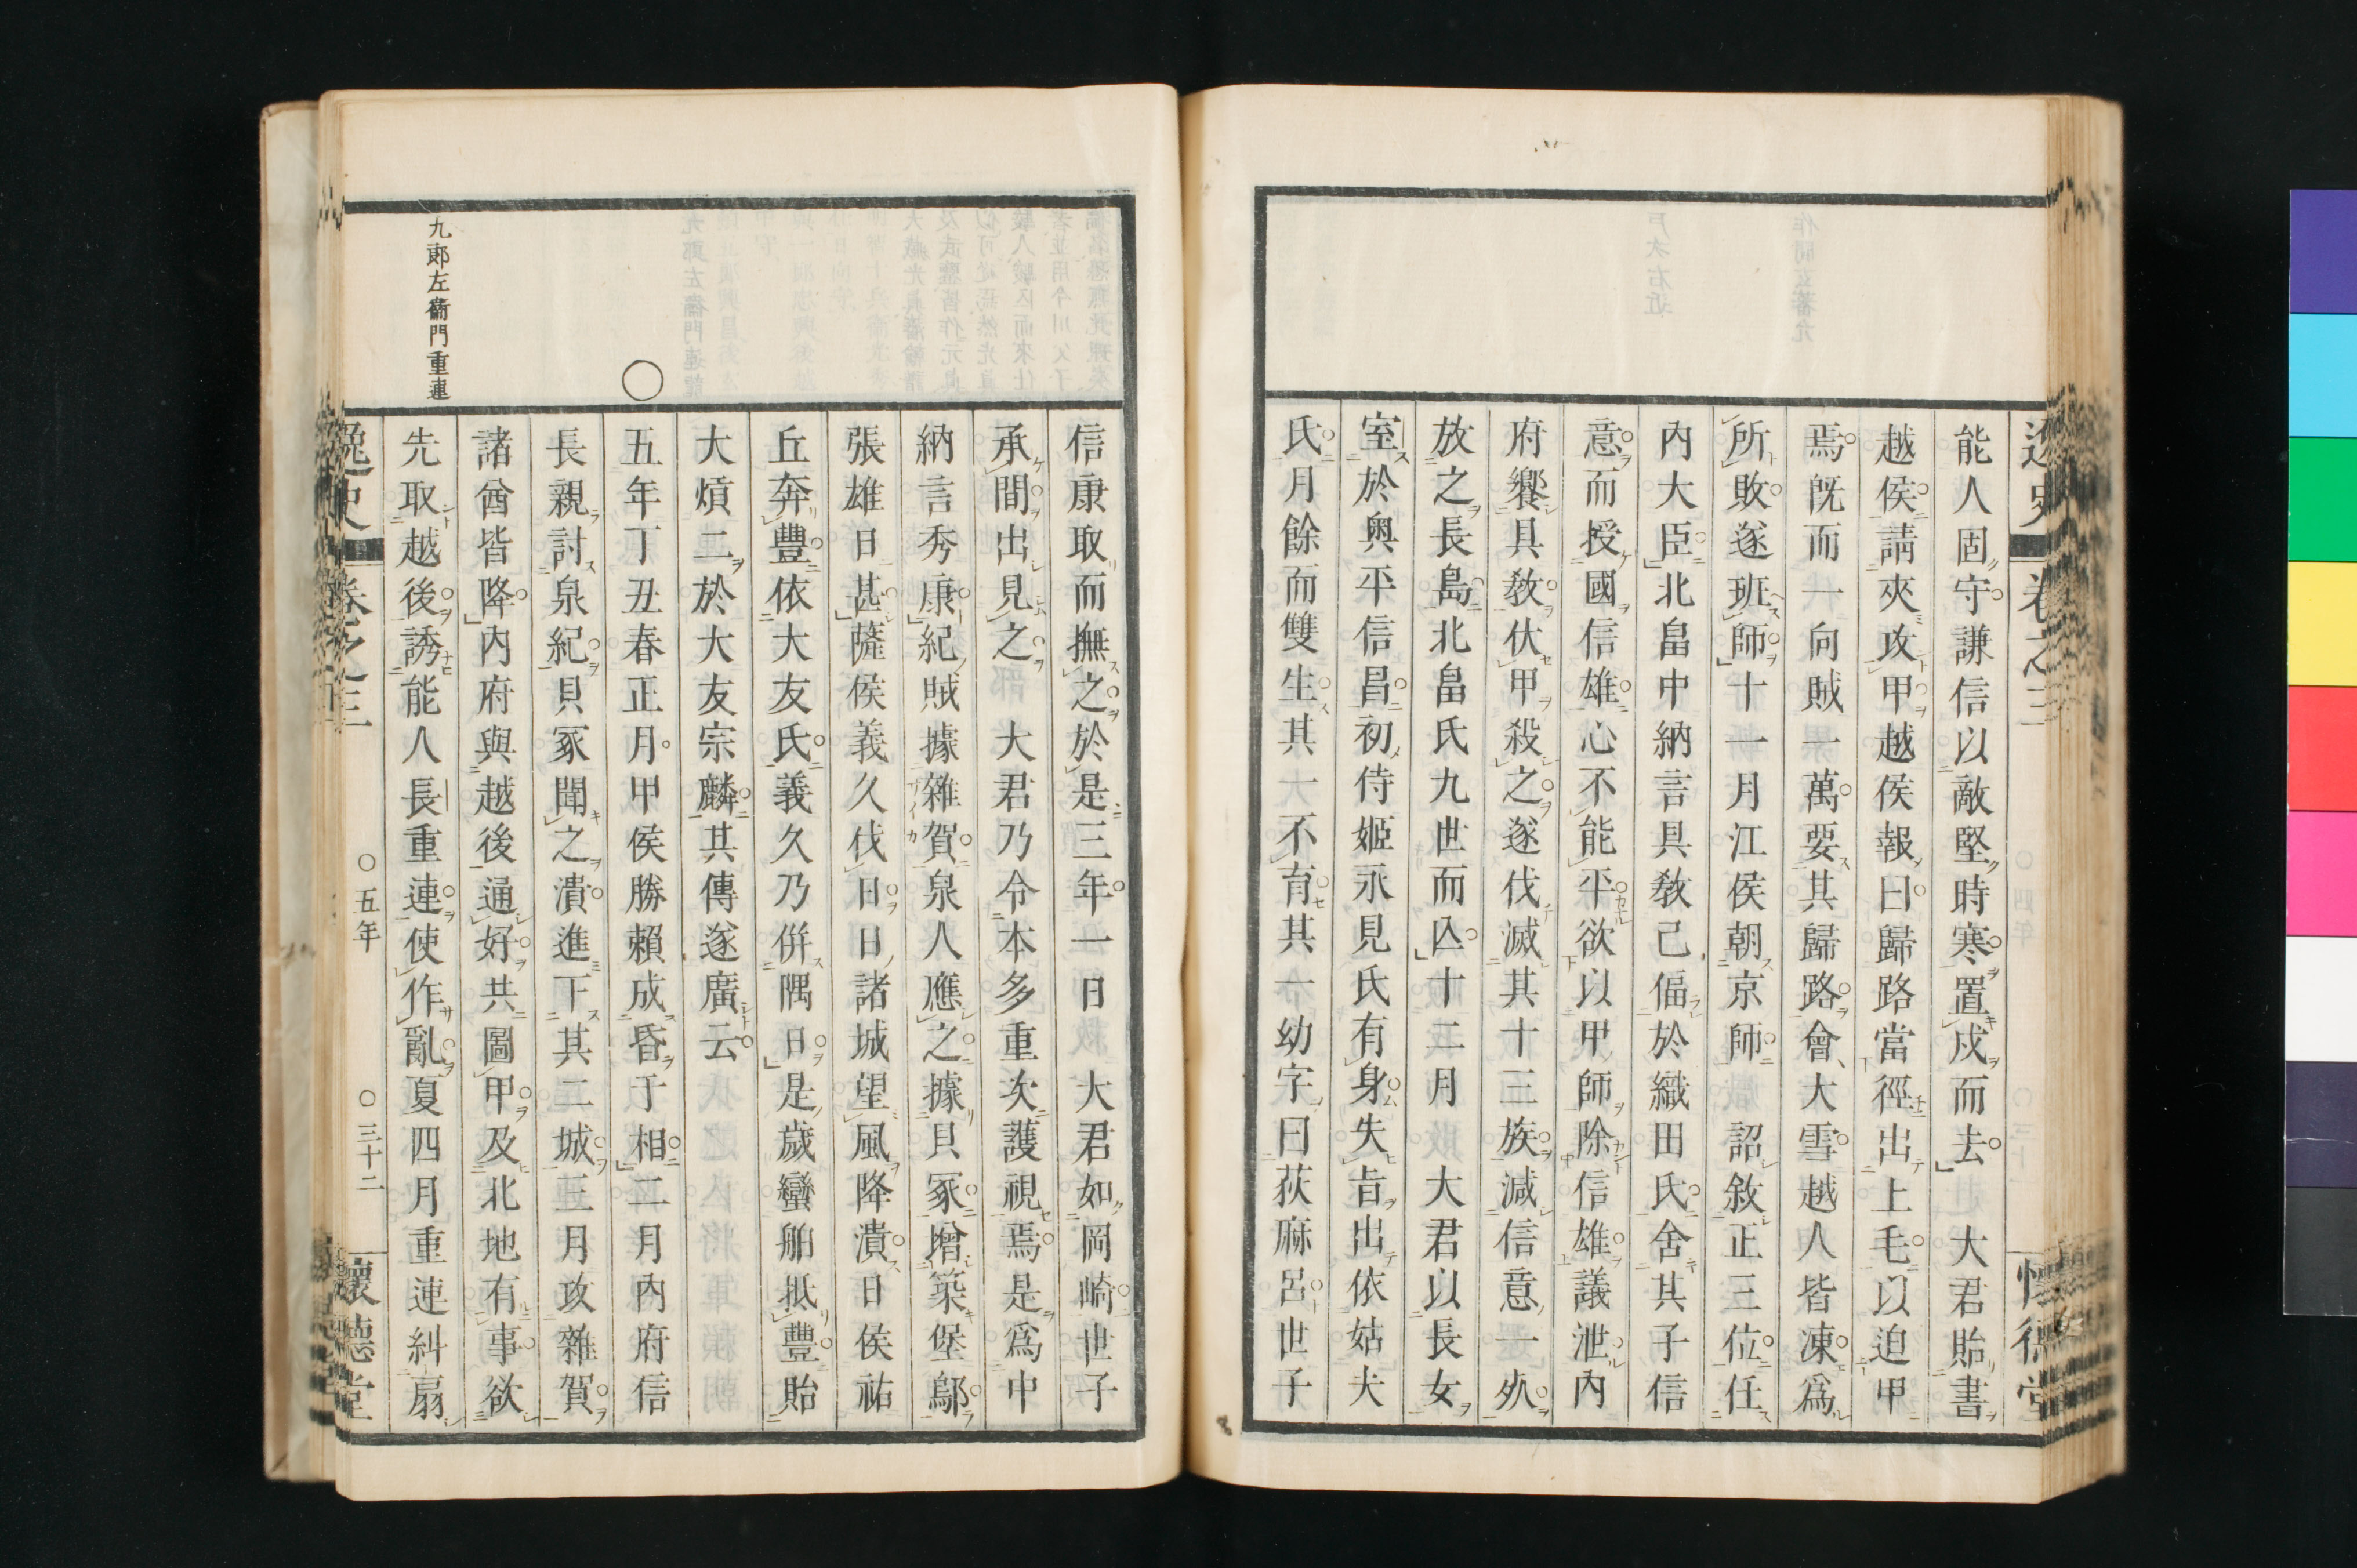 能人固守謙信以敵堅時寒置戍而去 大君貽書
越侯請夾攻甲越侯報曰歸路當徑出上毛以迫甲
焉既而一向賊一萬要其歸路會大雪越人皆凍爲
所敗遂班師十一月江侯朝京師 詔敘正三位任
內大臣北畠中納言具敎已偪於織田氏舍其子信
意而授國信雄心不能平欲以甲師除信雄議泄內
府饗具敎伏甲殺之遂伐滅其十三族滅信意一夘
放之長島北畠氏九世而亾十二月 大君以長女
室於奧平信昌初侍姬永見氏有身失旨出依姑夫
氏月餘而雙生其一不育其一幼字曰荻麻呂世子
信康取而撫之於是三年一日 大君如岡崎世子
承間出見之 大君乃令本多重次護視焉是爲中
納言秀康紀賊據雜賀泉人應之據貝冢增築堡鄔
張雄日甚薩侯義久伐日日諸城望風降潰日侯祐
丘奔豐依大友氏義久乃併隅日是歲蠻舶抵豐貽
大熕二於大友宗麟其傳遂廣云
○
五年丁丑春正月甲侯勝賴成昏于相二月內府信
長親討泉紀貝冢聞之潰進下其二城三月攻雜賀
諸酋皆降內府與越後通好共圖甲及北地有事欲
九郞左衞門重連
先取越後誘能人長重連使作亂夏四月重連糾扇
逸史 卷之三 ○五年 ○三十二 懷德堂